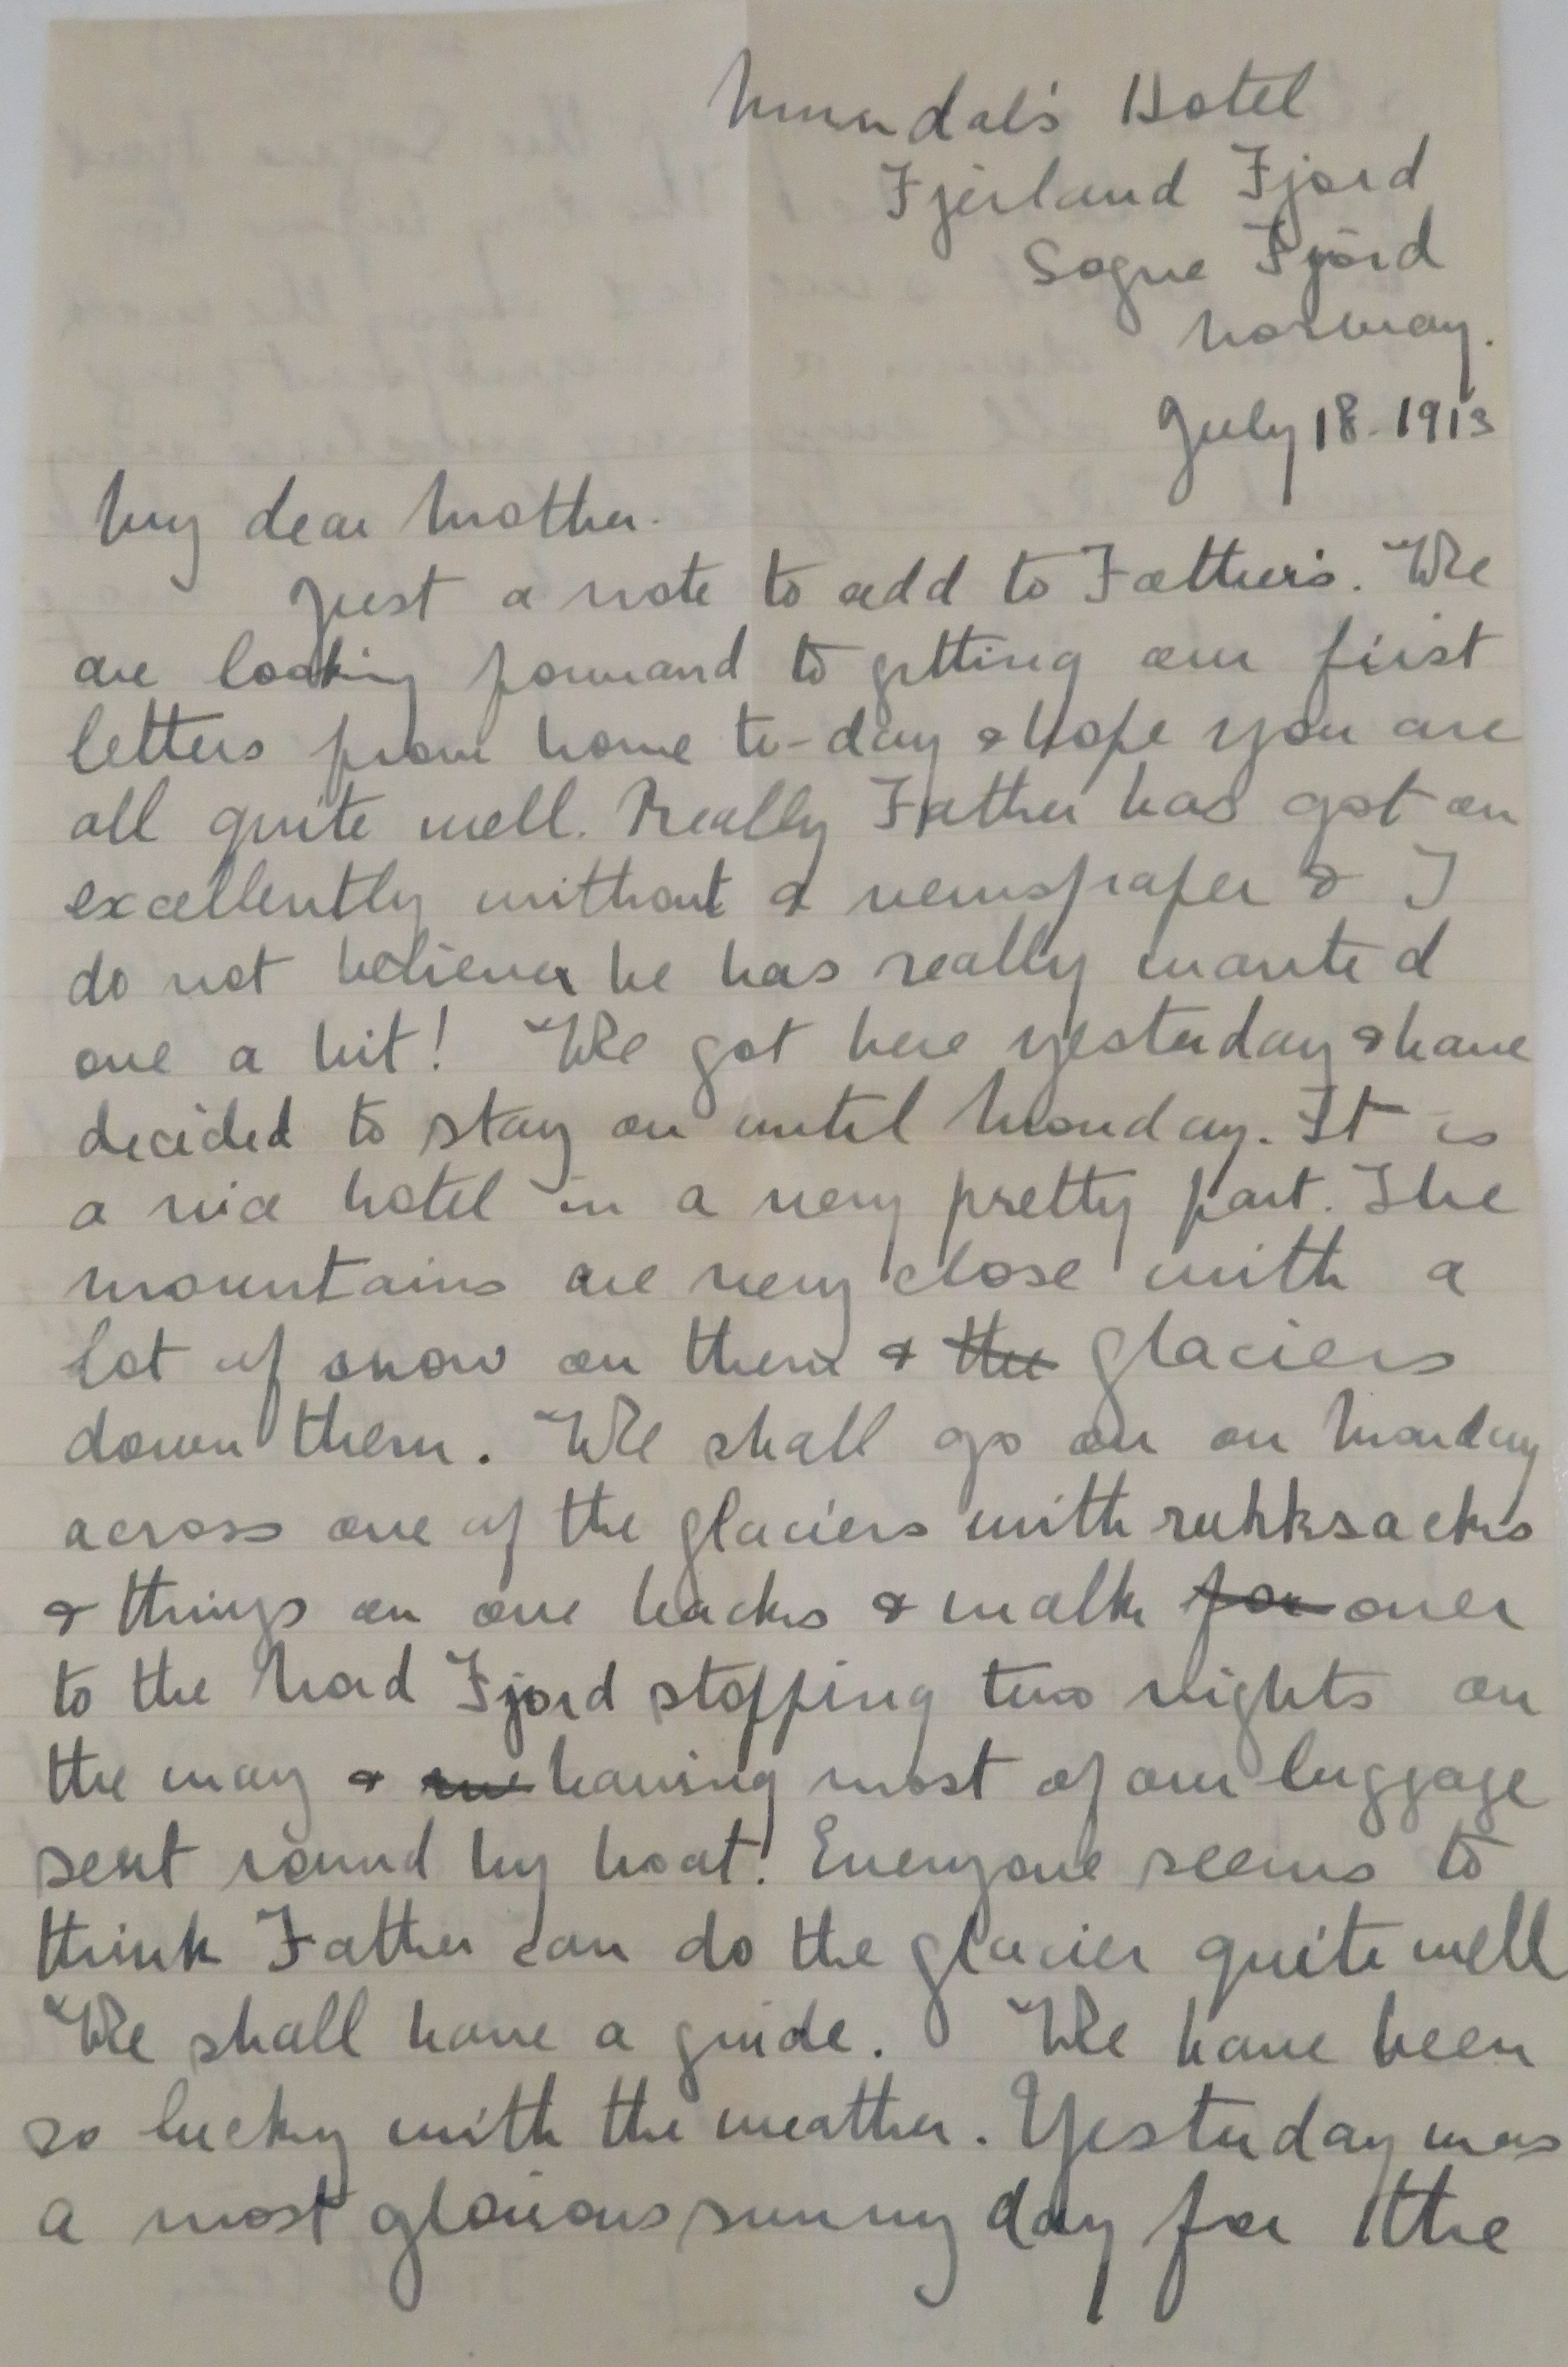 Mundal's Hotel
Fjerland Fjord
Sogne Fjord
Norway.
July 18. 1913
My dear Mother.
Just a note to add to Father's. We
are looking forward to getting our first
letters from home to-day & hope you are
all quite well. Really Father has got on
excellently without a newspaper & I
do not believe he has really wanted
one a bit! We got here yesterday & have
decided to stay on until Monday. It is
a nice hotel in a very pretty part. The
mountains are very close with a
lot of snow on them & the glaciers
down them. We shall go on on Monday
across one of the glaciers with rukksacks
& things on our backs & walk for over
to the Nord Fjord stopping two nights on
the way & having most of our luggage
sent round by boat. Everyone seems to
think Father can do the glacier quite well
We shall have a guide. We have been
so lucky with the weather. Yesterday was
a most glorious sunny day for the